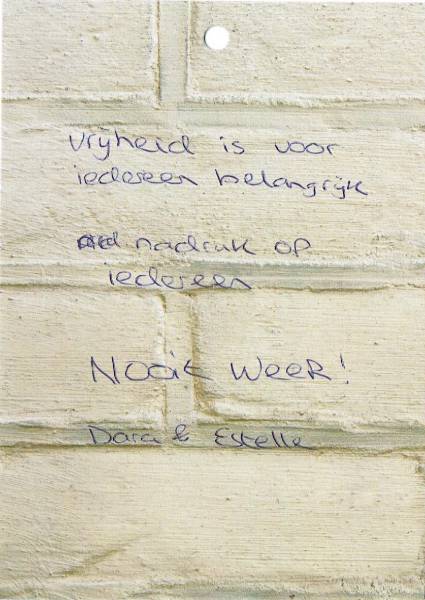 vrijheid is voor
iedereen belangrijk
nadruk op
iedereen
Nooit weer!
Dara & Estelle